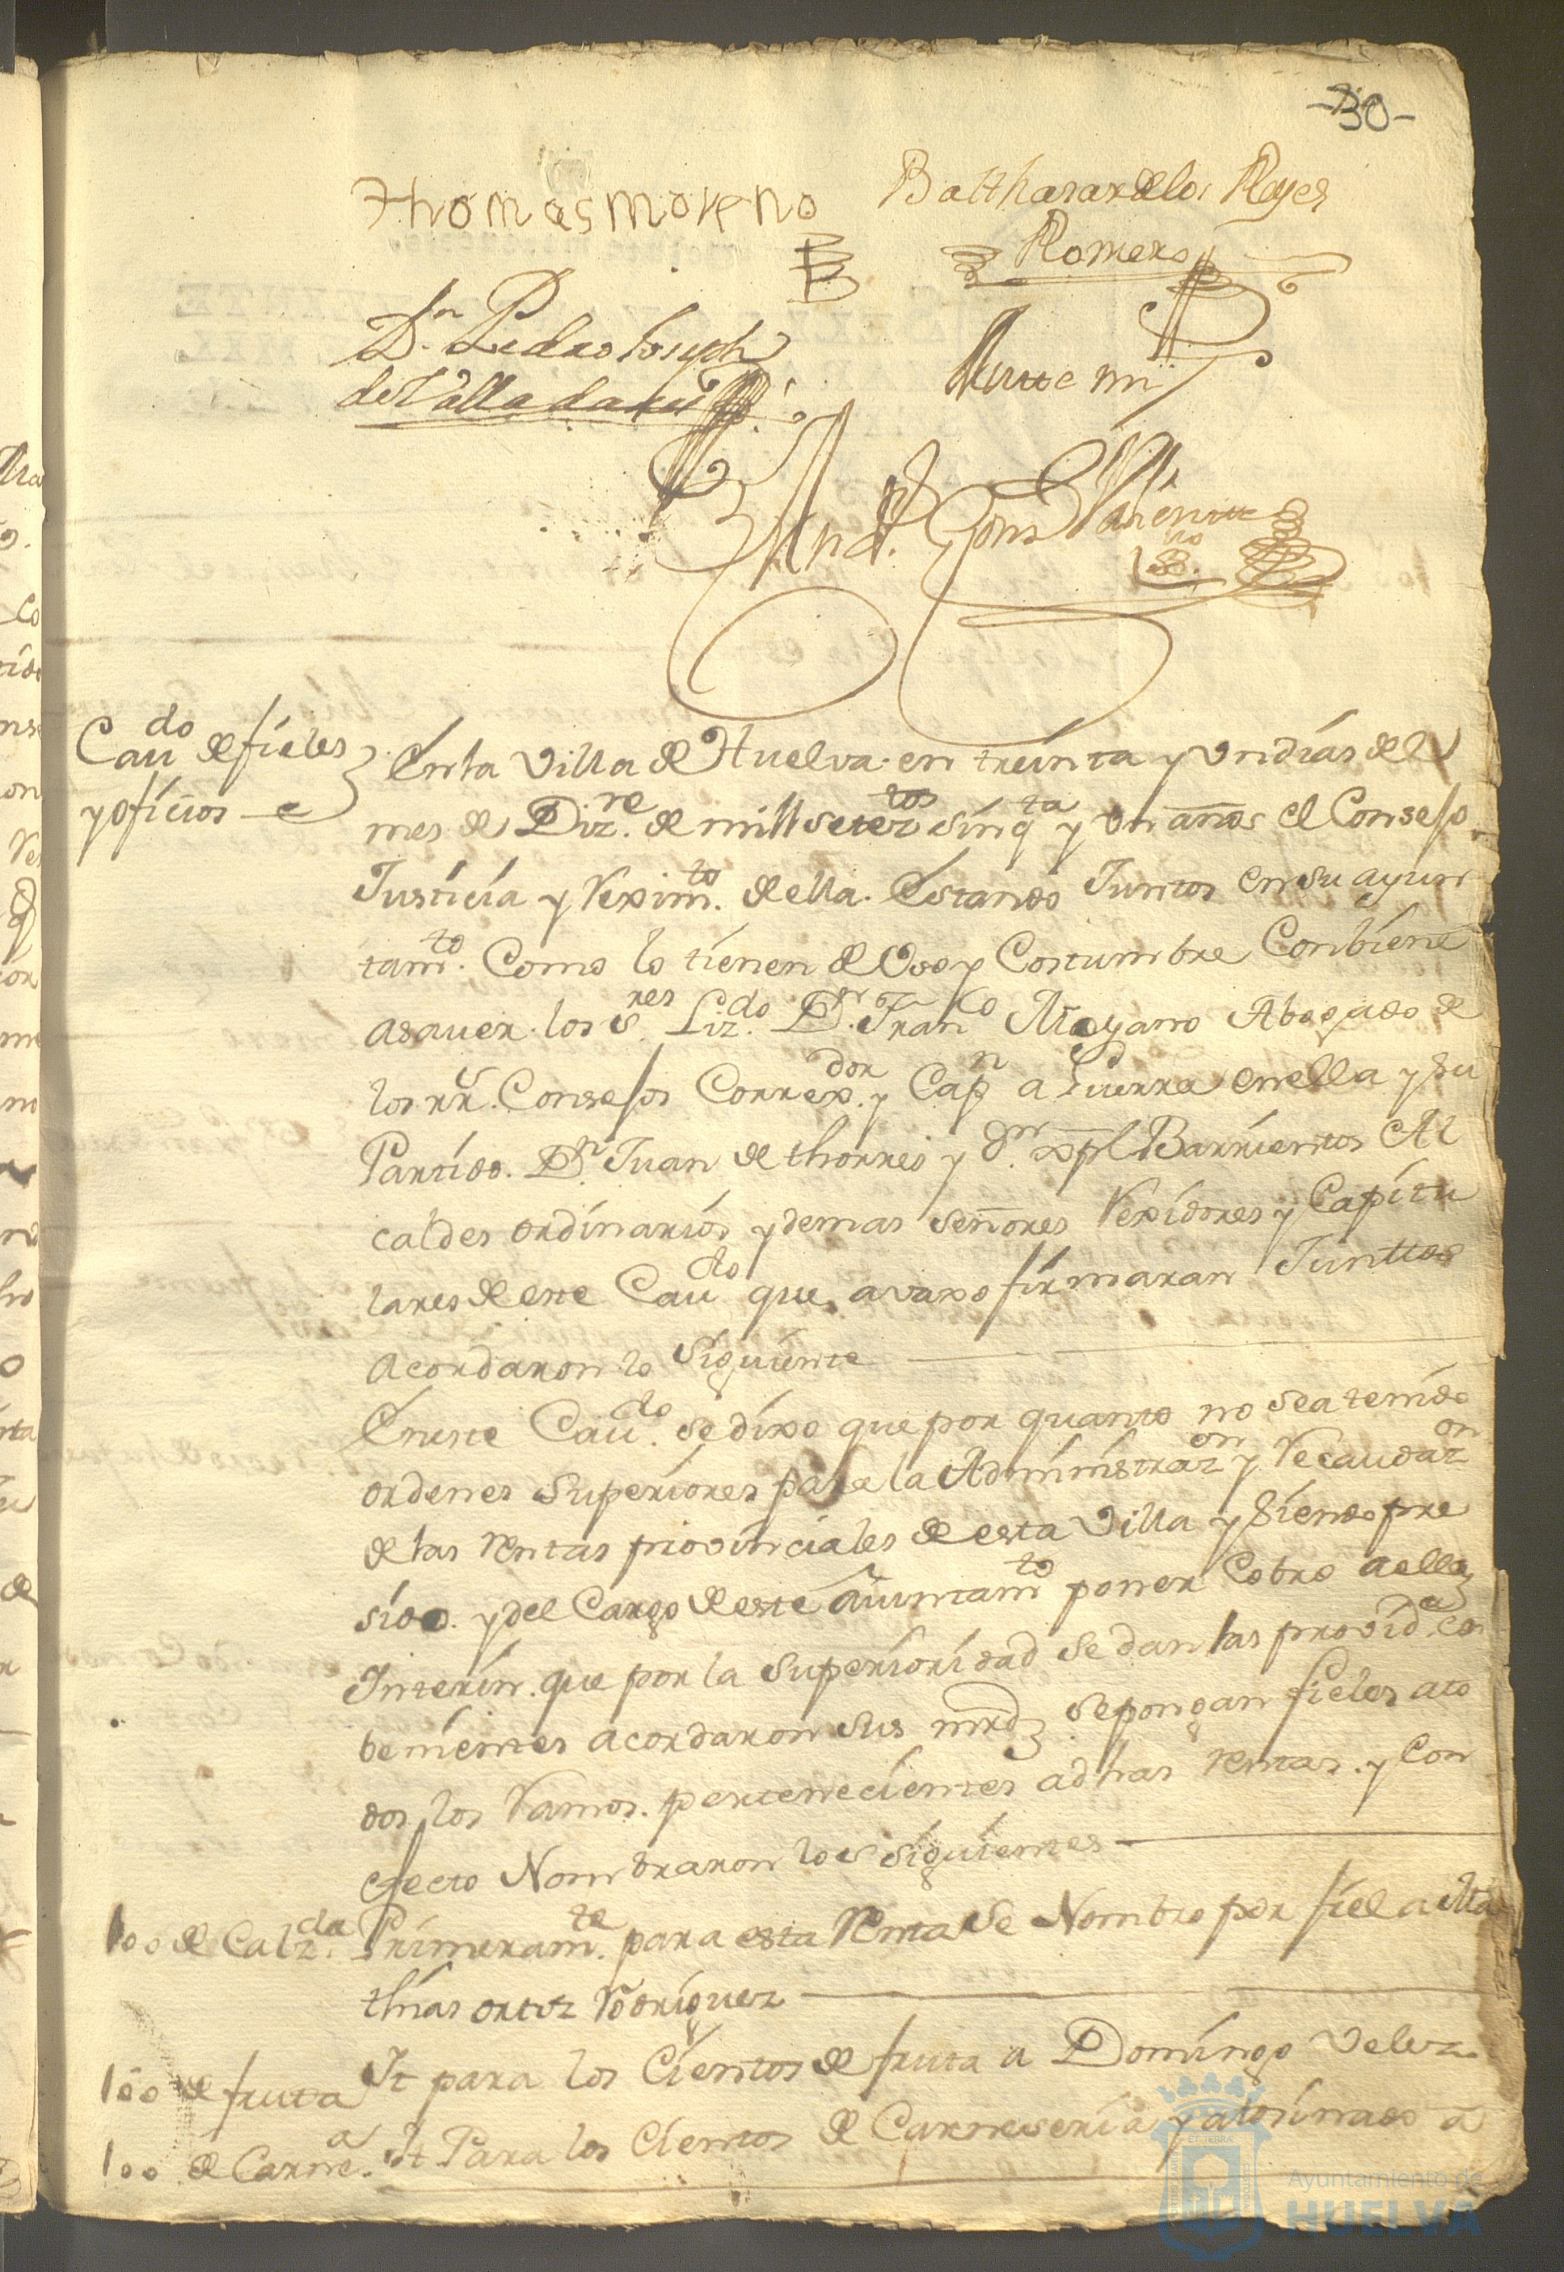 -30-
thomas moreno
Balthasar de los Reyes
Romero
Dn. Pedro Joseph
de Valladares
Ante mi
And. Gonz Valiente
Cau.do de fieles
y oficios
En la Villa de Huelva en treinta y un dias del
mes de Diz.re de mill setez.tos sinq.ta y un años el Consejo
Justicia y Reximto. della. Estando Juntos en su ayun
tamto. Como lo tienen de Uso y Costumbre Conbiene
a saver los S.res Lizdo. Dn. Franco Moyano Abogado de
los RRs. Consejos Correxdor. y Capn a Guerra en ella y su
Partido. Dn. Juan de thorres y Dn. xpl Barrientos Al
caldes ordinarios y demas señores Rexidores y Capitu
lares de este Caudo que avaxo firmaran Junttos
acordaron lo siguiente
En este Caudo. se dixo que por quanto no se a tenido
ordenes superiores para la Administrazon y Recaudazon
de las Rentas provinciales de esta Villa y siendo pre
siso. y del Cargo de este aiuntamto poner Cobro a ellas
Interin que por la superioridad se dan las provid.as con
benientes acordaron sus mrds. se pongan fieles a to
dos los Ramos. pertenecientes a dhas Rentas. y Con
efecto Nombraron los siguientes
100 de Calz.da
Primeramte. para esta Renta se Nombro por fiel a Ma
thias ortiz Rodriguez
100 de fruta
It para los Cientos de fruta a Domingo Velez
100 de Carne.a
It Para los Cientos de Carneseria y atosinado a
Ayuntamiento de
HUELVA